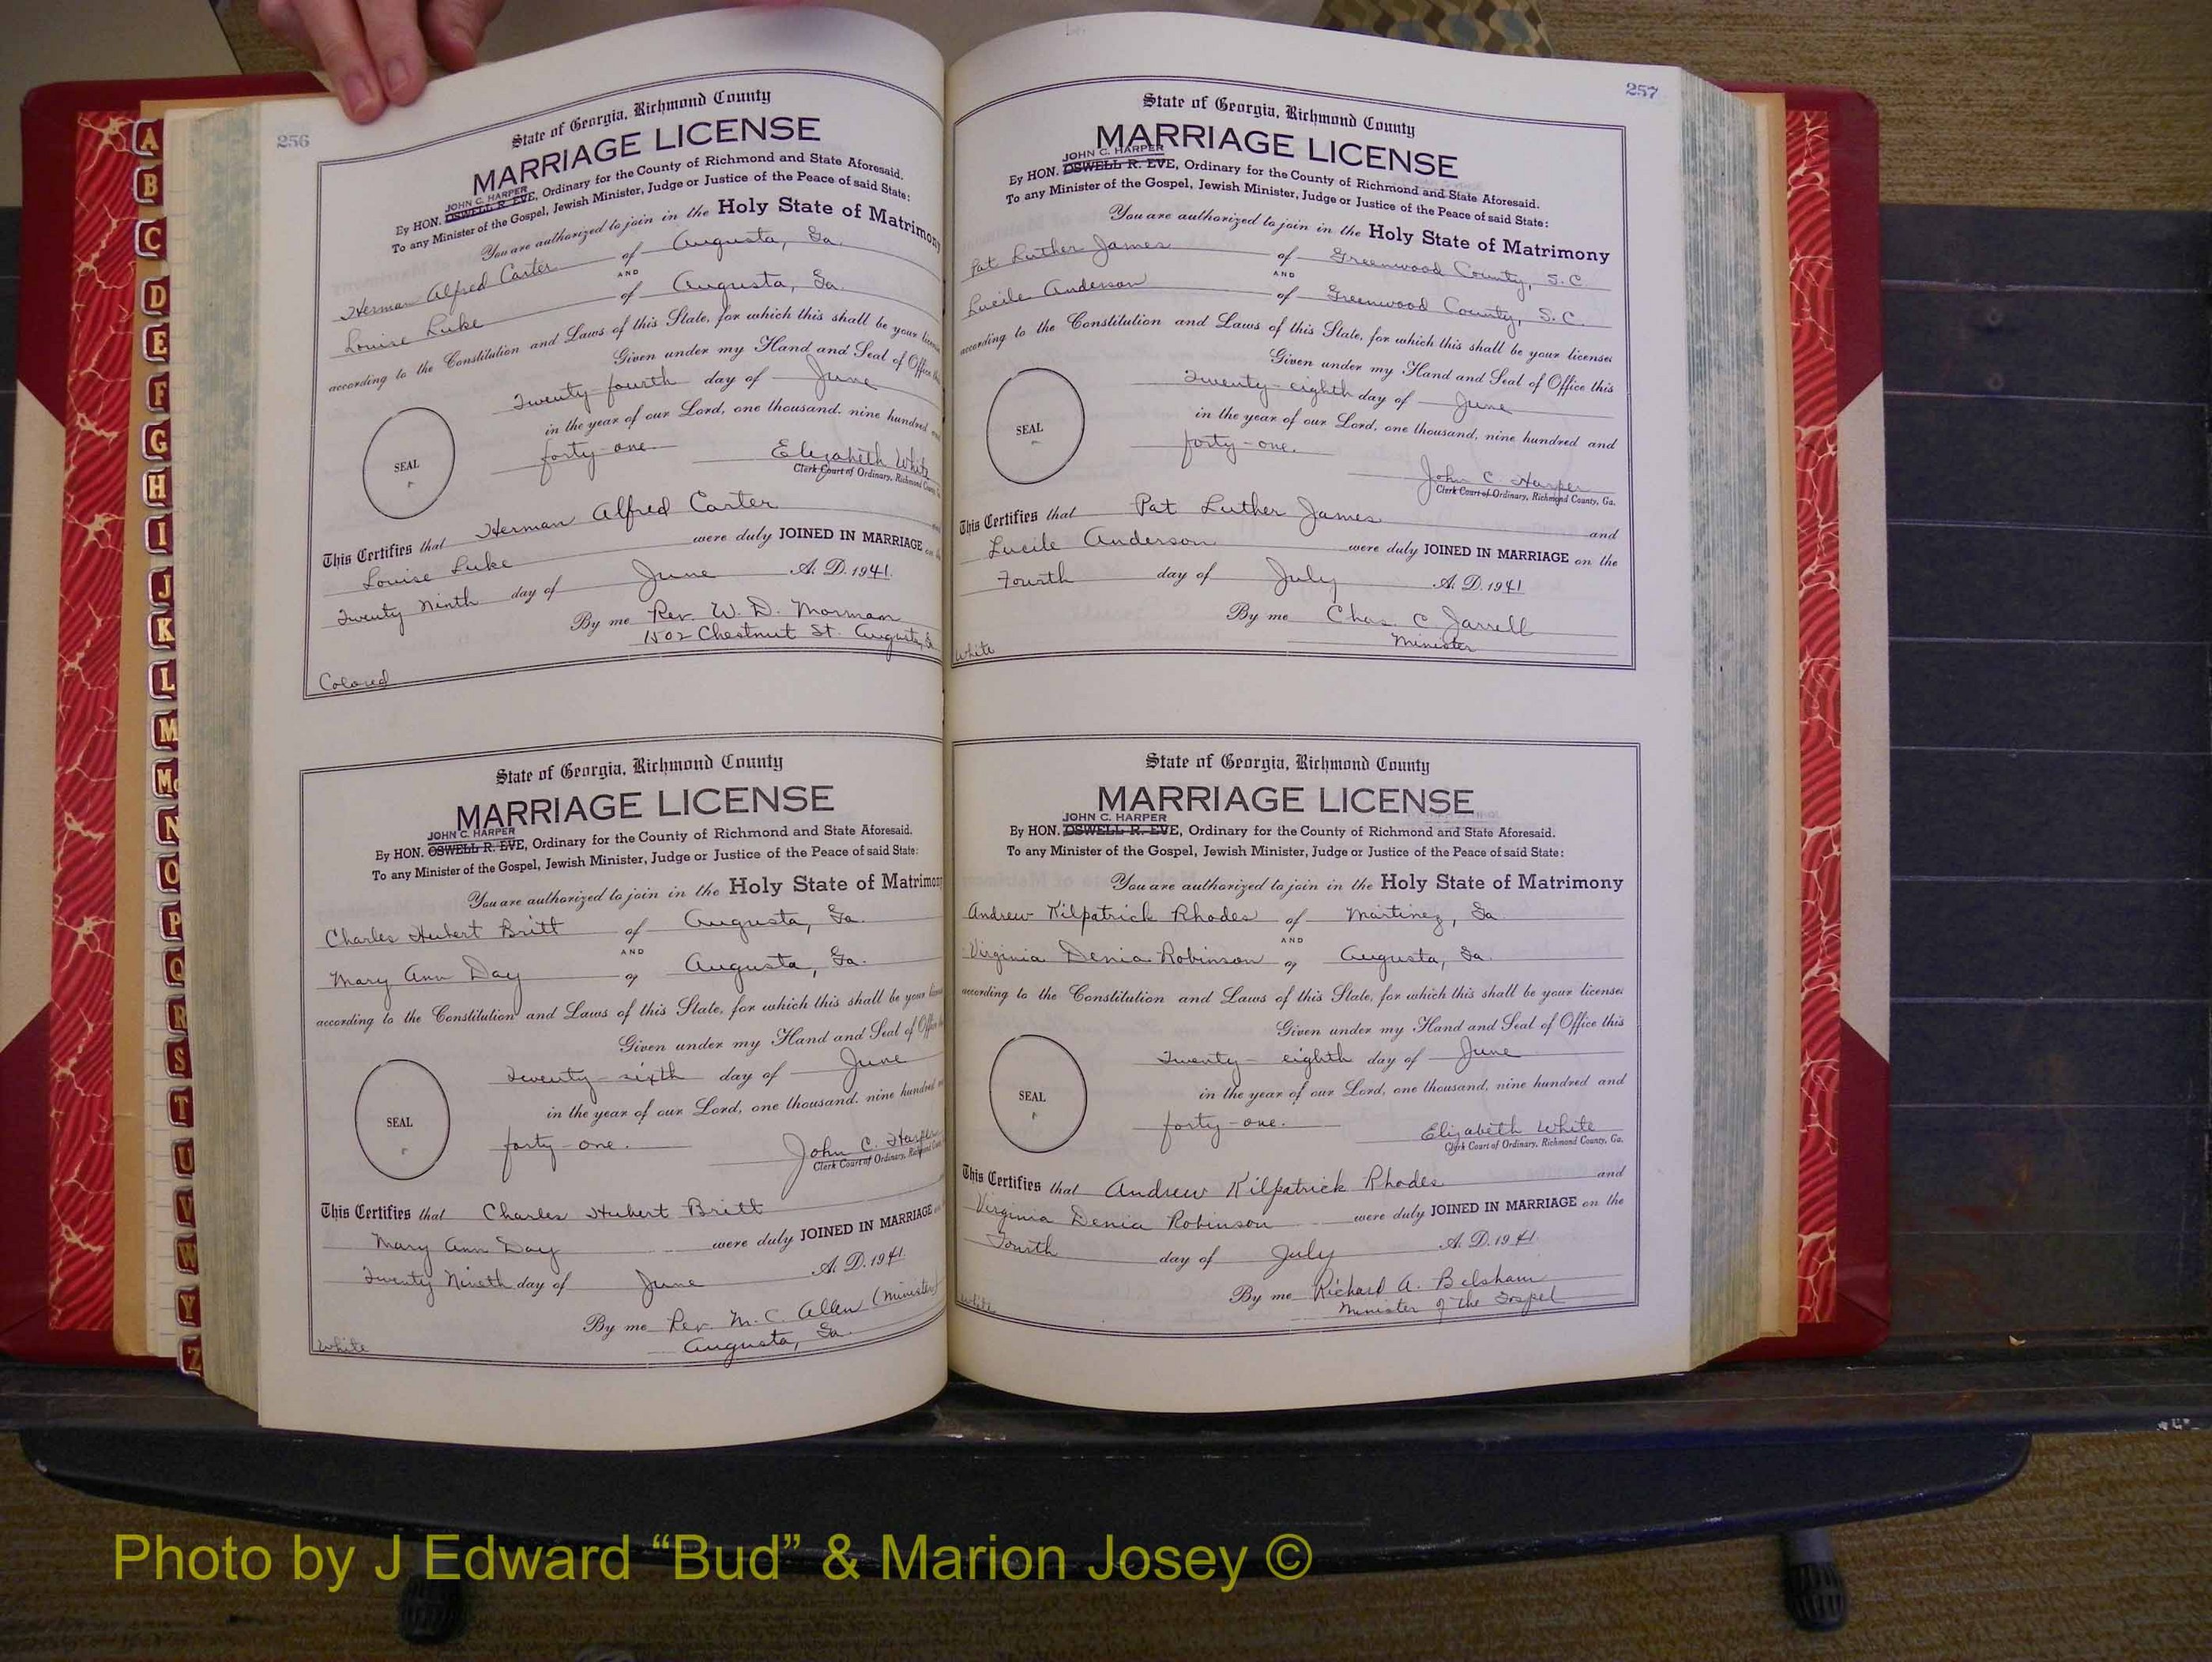 256
State of Georgia, Richmond County
MARRIAGE LICENSE
JOHN C. HARPER
By HON. OSWELL R. EVE, Ordinary for the County of Richmond and State Aforesaid.
To any Minister of the Gospel, Jewish Minister, Judge or Justice of the Peace of said State:
You are authorized to join in the Holy State of Matrimony
Herman Alfred Carter of Augusta, Ga.
AND
Louise Luke of Augusta, Ga.
according to the Constitution and Laws of this State, for which this shall be your
Given under my Hand and Seal of Office
Twenty-fourth day of June
in the year of our Lord, one thousand, nine hundred
SEAL
forty-one
Elizabeth White
Clerk Court of Ordinary, Richmond
This Certifies that Herman Alfred Carter
Louise Luke were duly JOINED IN MARRIAGE on
Twenty Ninth day of June A. D. 1941.
By me Rev. W. D. Morman
1502 Chestnut St. Augusta,
Colored
State of Georgia, Richmond County
MARRIAGE LICENSE
JOHN C. HARPER
By HON. OSWELL R. EVE, Ordinary for the County of Richmond and State Aforesaid.
To any Minister of the Gospel, Jewish Minister, Judge or Justice of the Peace of said State:
You are authorized to join in the Holy State of Matrimony
Charles Hubert Britt of Augusta, Ga.
AND
Mary Ann Day of Augusta, Ga.
according to the Constitution and Laws of this State, for which this shall be your
Given under my Hand and Seal of Office
Twenty-sixth day of June
in the year of our Lord, one thousand, nine hundred
SEAL
forty-one.
John C. Harper
Clerk Court of Ordinary, Richmond
This Certifies that Charles Hubert Britt
Mary Ann Day were duly JOINED IN MARRIAGE
Twenty Nineth day of June A. D. 1941.
By me Rev. M. C. Allen (Minister)
Augusta, Ga.
White
257
State of Georgia, Richmond County
MARRIAGE LICENSE
JOHN C. HARPER
By HON. OSWELL R. EVE, Ordinary for the County of Richmond and State Aforesaid.
To any Minister of the Gospel, Jewish Minister, Judge or Justice of the Peace of said State:
You are authorized to join in the Holy State of Matrimony
Pat Luther James of Greenwood County, S.C.
AND
Lucile Anderson of Greenwood County, S.C.
according to the Constitution and Laws of this State, for which this shall be your license:
Given under my Hand and Seal of Office this
Twenty-eighth day of June
in the year of our Lord, one thousand, nine hundred and
SEAL
forty-one.
John C. Harper
Clerk Court of Ordinary, Richmond County, Ga.
This Certifies that Pat Luther James and
Lucile Anderson were duly JOINED IN MARRIAGE on the
Fourth day of July A. D. 1941
By me Chas. C. Jarrell
Minister
White
State of Georgia, Richmond County
MARRIAGE LICENSE
JOHN C. HARPER
By HON. OSWELL R. EVE, Ordinary for the County of Richmond and State Aforesaid.
To any Minister of the Gospel, Jewish Minister, Judge or Justice of the Peace of said State:
You are authorized to join in the Holy State of Matrimony
Andrew Kilpatrick Rhodes of Martinez, Ga
AND
Virginia Denia Robinson of Augusta, Ga.
according to the Constitution and Laws of this State, for which this shall be your license:
Given under my Hand and Seal of Office this
Twenty-eighth day of June
in the year of our Lord, one thousand, nine hundred and
SEAL
forty-one.
Elizabeth White
Clerk Court of Ordinary, Richmond County, Ga.
This Certifies that Andrew Kilpatrick Rhodes and
Virginia Denia Robinson were duly JOINED IN MARRIAGE on the
Fourth day of July A. D. 1941
By me Richard A. Belsham
Minister of the Gospel
White
A
B
C
D
E
F
G
H
I
J
K
L
M
Mc
N
O
P
Q
R
S
T
U
V
W
Y
Z
Photo by J Edward “Bud” & Marion Josey ©